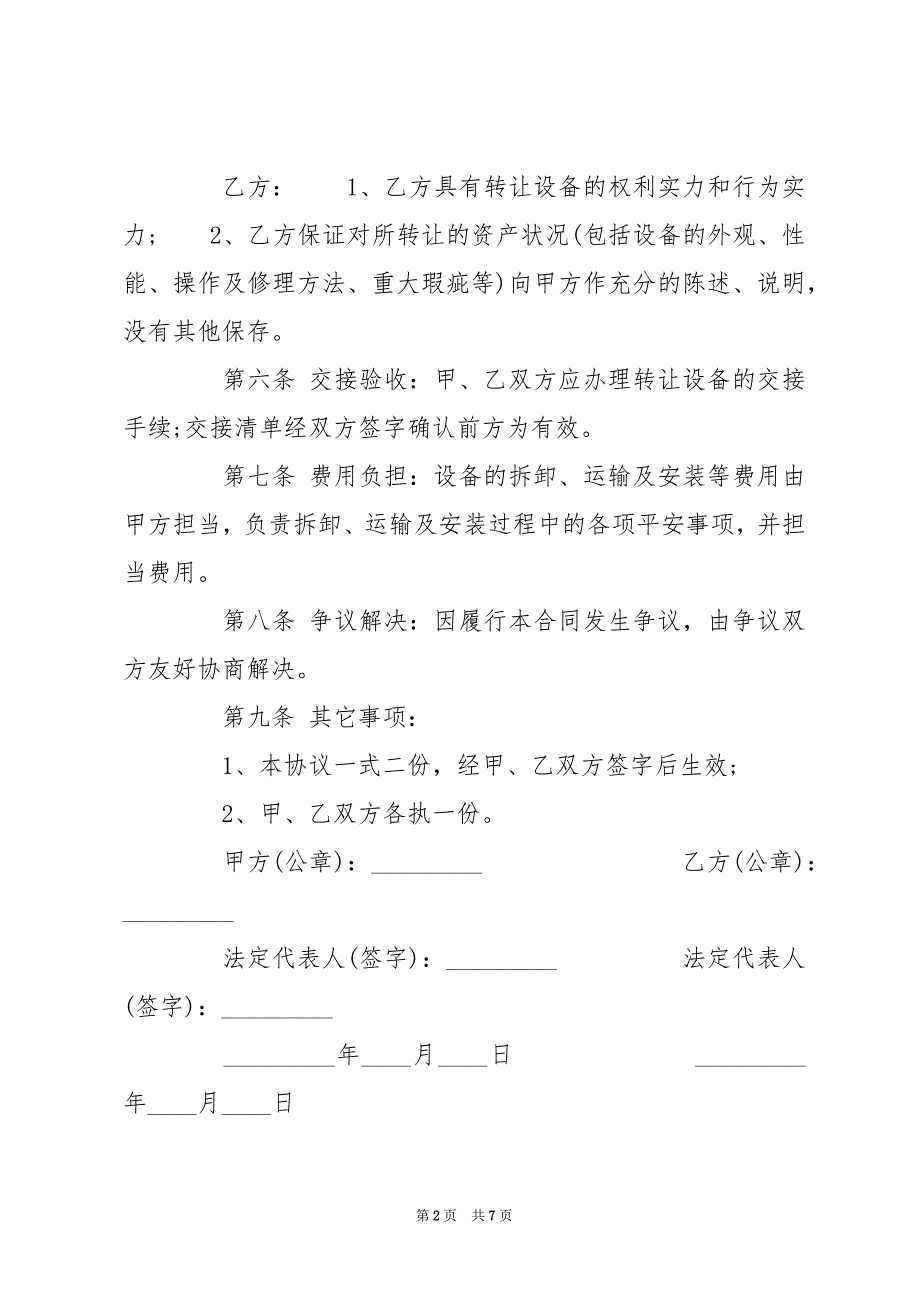 乙方：    1、乙方具有转让设备的权利实力和行为实
力;    2、乙方保证对所转让的资产状况(包括设备的外观、性
能、操作及修理方法、重大瑕疵等)向甲方作充分的陈述、说明，
没有其他保存。
第六条 交接验收：甲、乙双方应办理转让设备的交接
手续;交接清单经双方签字确认前方为有效。
第七条 费用负担：设备的拆卸、运输及安装等费用由
甲方担当，负责拆卸、运输及安装过程中的各项平安事项，并担
当费用。
第八条 争议解决：因履行本合同发生争议，由争议双
方友好协商解决。
第九条 其它事项：
1、本协议一式二份，经甲、乙双方签字后生效;
2、甲、乙双方各执一份。
甲方(公章)：_________    乙方(公章)：
_________
法定代表人(签字)：_________    法定代表人
(签字)：_________
_________年____月____日    _________
年____月____日
第 2 页  共 7 页